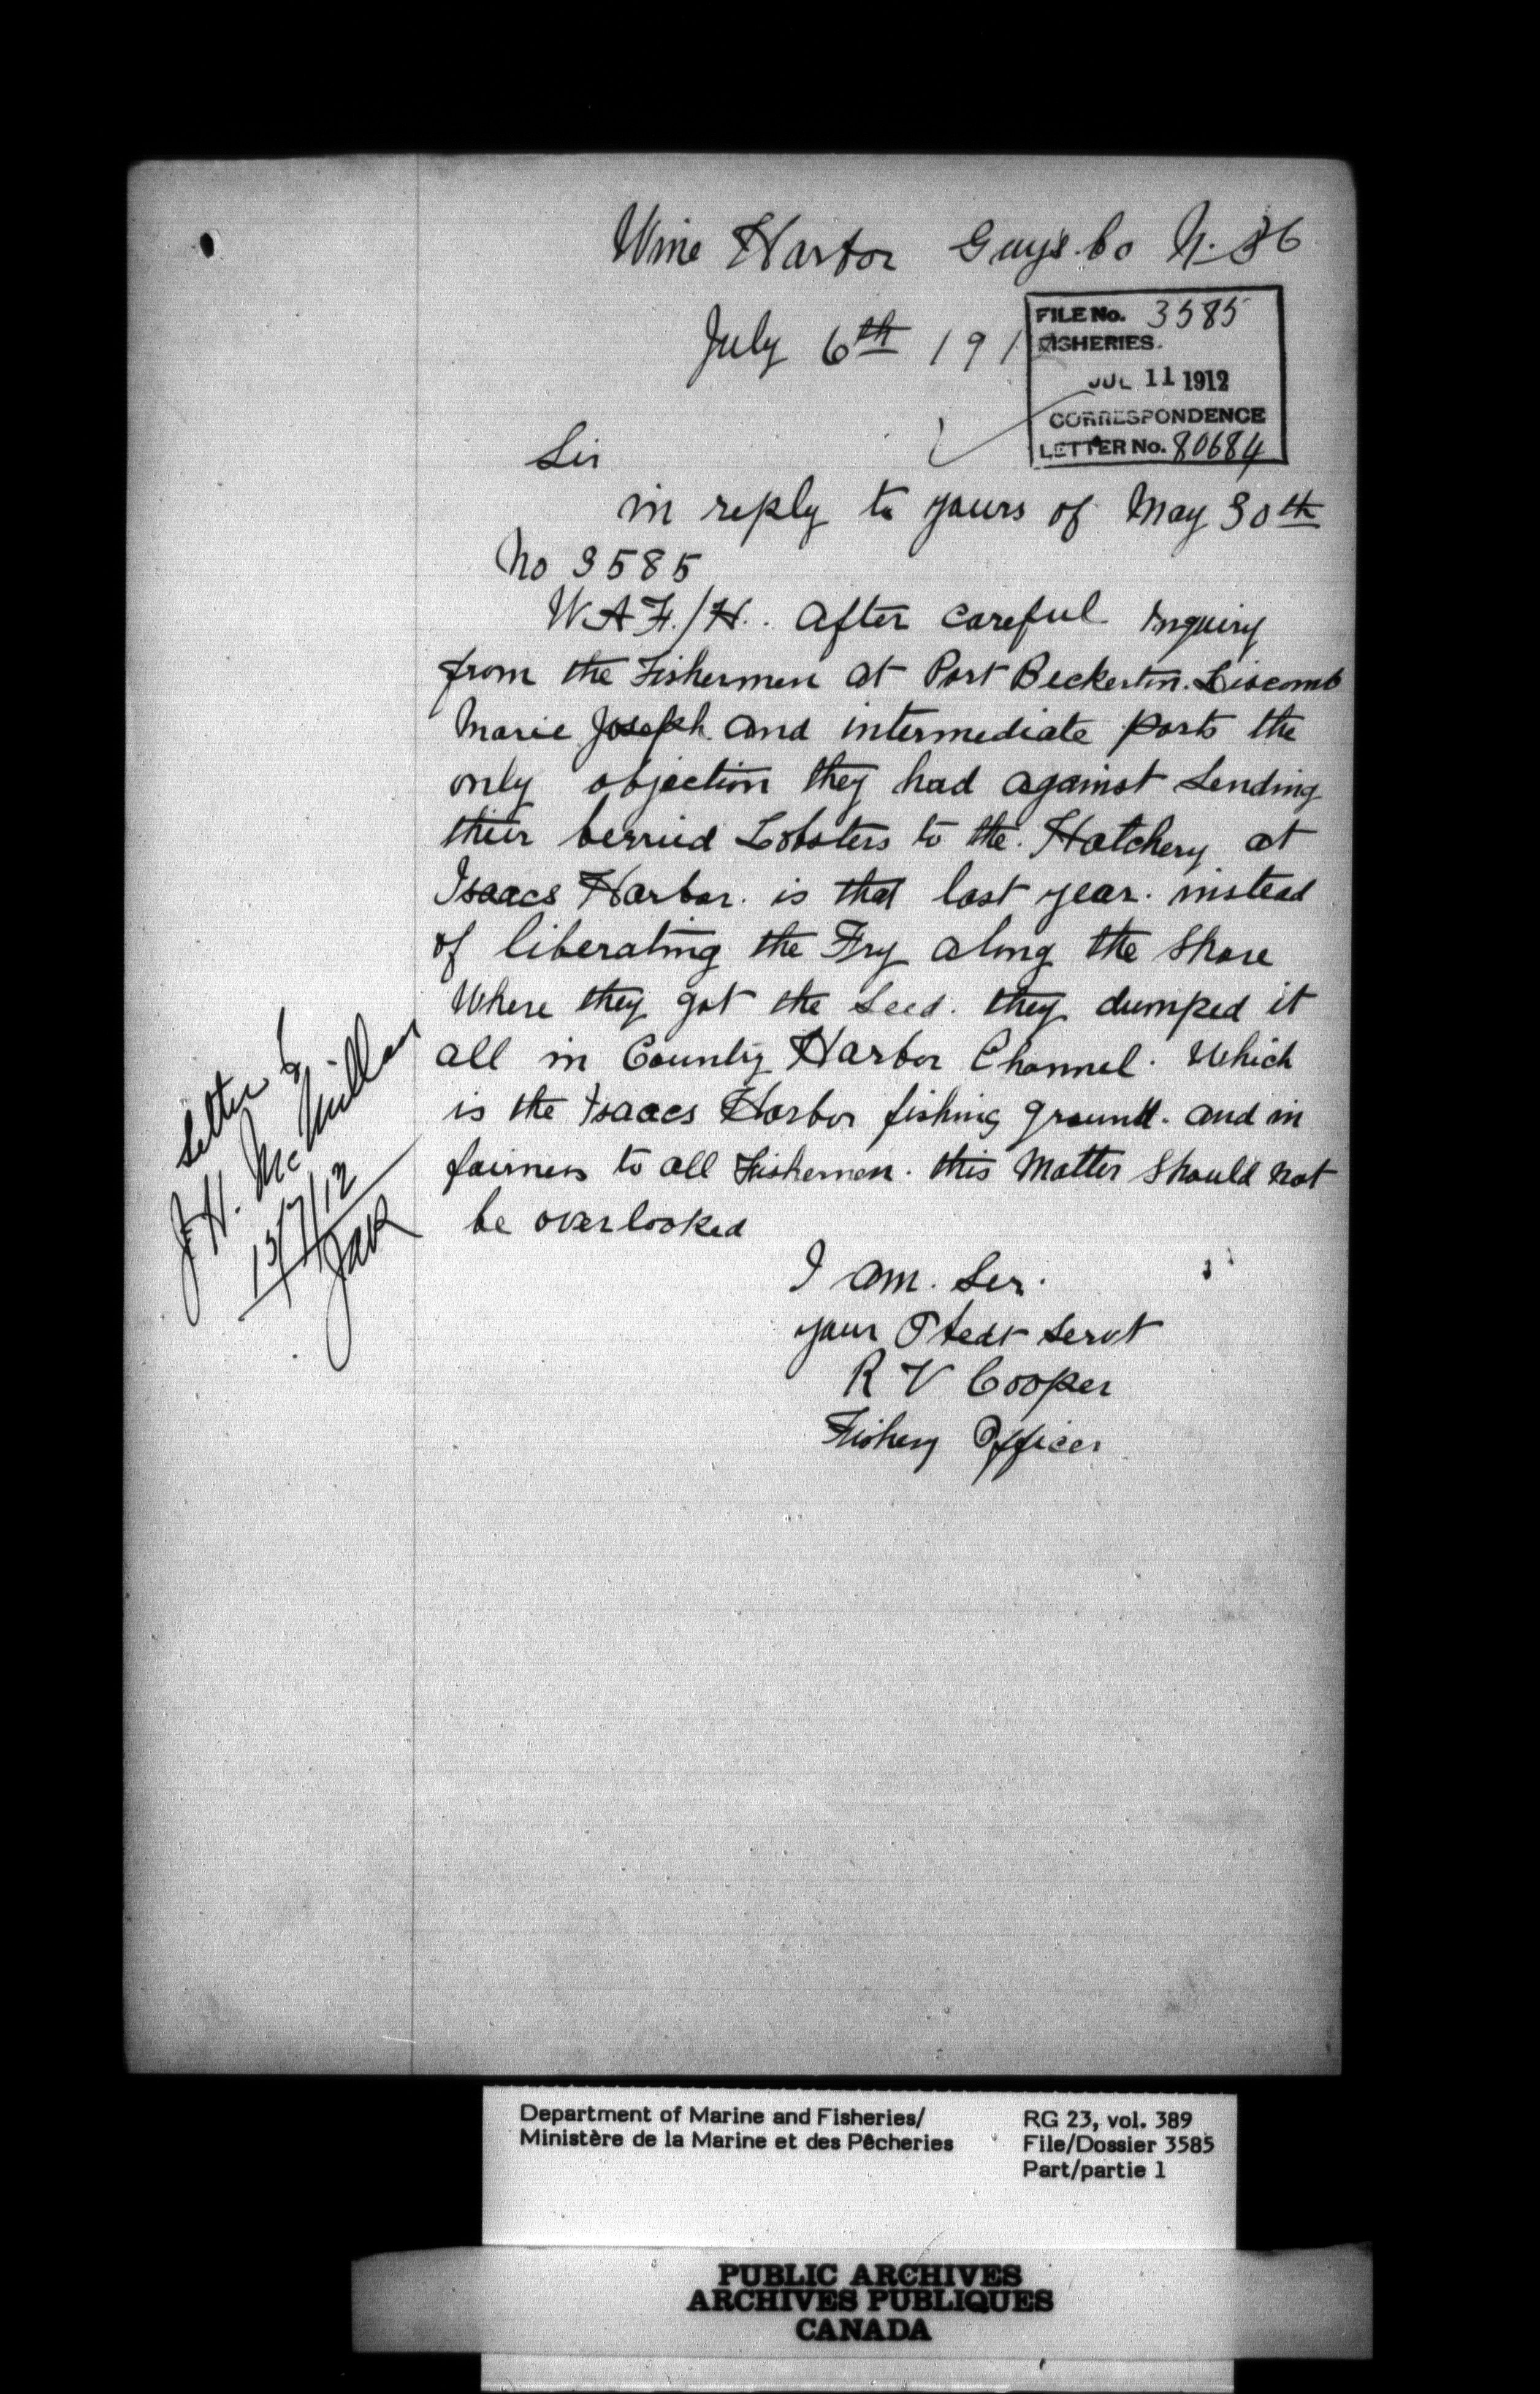 Wine Harbor Guys. Co N.
July 6th 191
FILE No. 3585
FISHERIES.
JUL 11 1912
CORRESPONDENCE
LETTER No. 80684
Sir
in reply to yours of May 30th
No 3585
W A F./H.. After Careful Inquiry
from the Fishermen at Port Beckerton. Liscomb
Marie Joseph. and intermediate ports the
only objection they had against Sending
their berried Lobsters to the. Hatchery at
Isaacs Harbor. is that last year. instead
of liberating the Fry along the Shore
Where they got the Seed. they dumped it
all in Country Harbor Channel. Which
is the Isaacs Harbor fishing ground. and in
fairness to all Fishermen. this Matter Should not
be overlooked
I am. Sir.
your Obedt Servt
R V Cooper
Fishery Officer
Letter to
J. H. McMillan
15/7/12
Department of Marine and Fisheries/
Ministère de la Marine et des Pêcheries
RG 23, vol. 389
File/Dossier 3585
Part/partie 1
PUBLIC ARCHIVES
ARCHIVES PUBLIQUES
CANADA